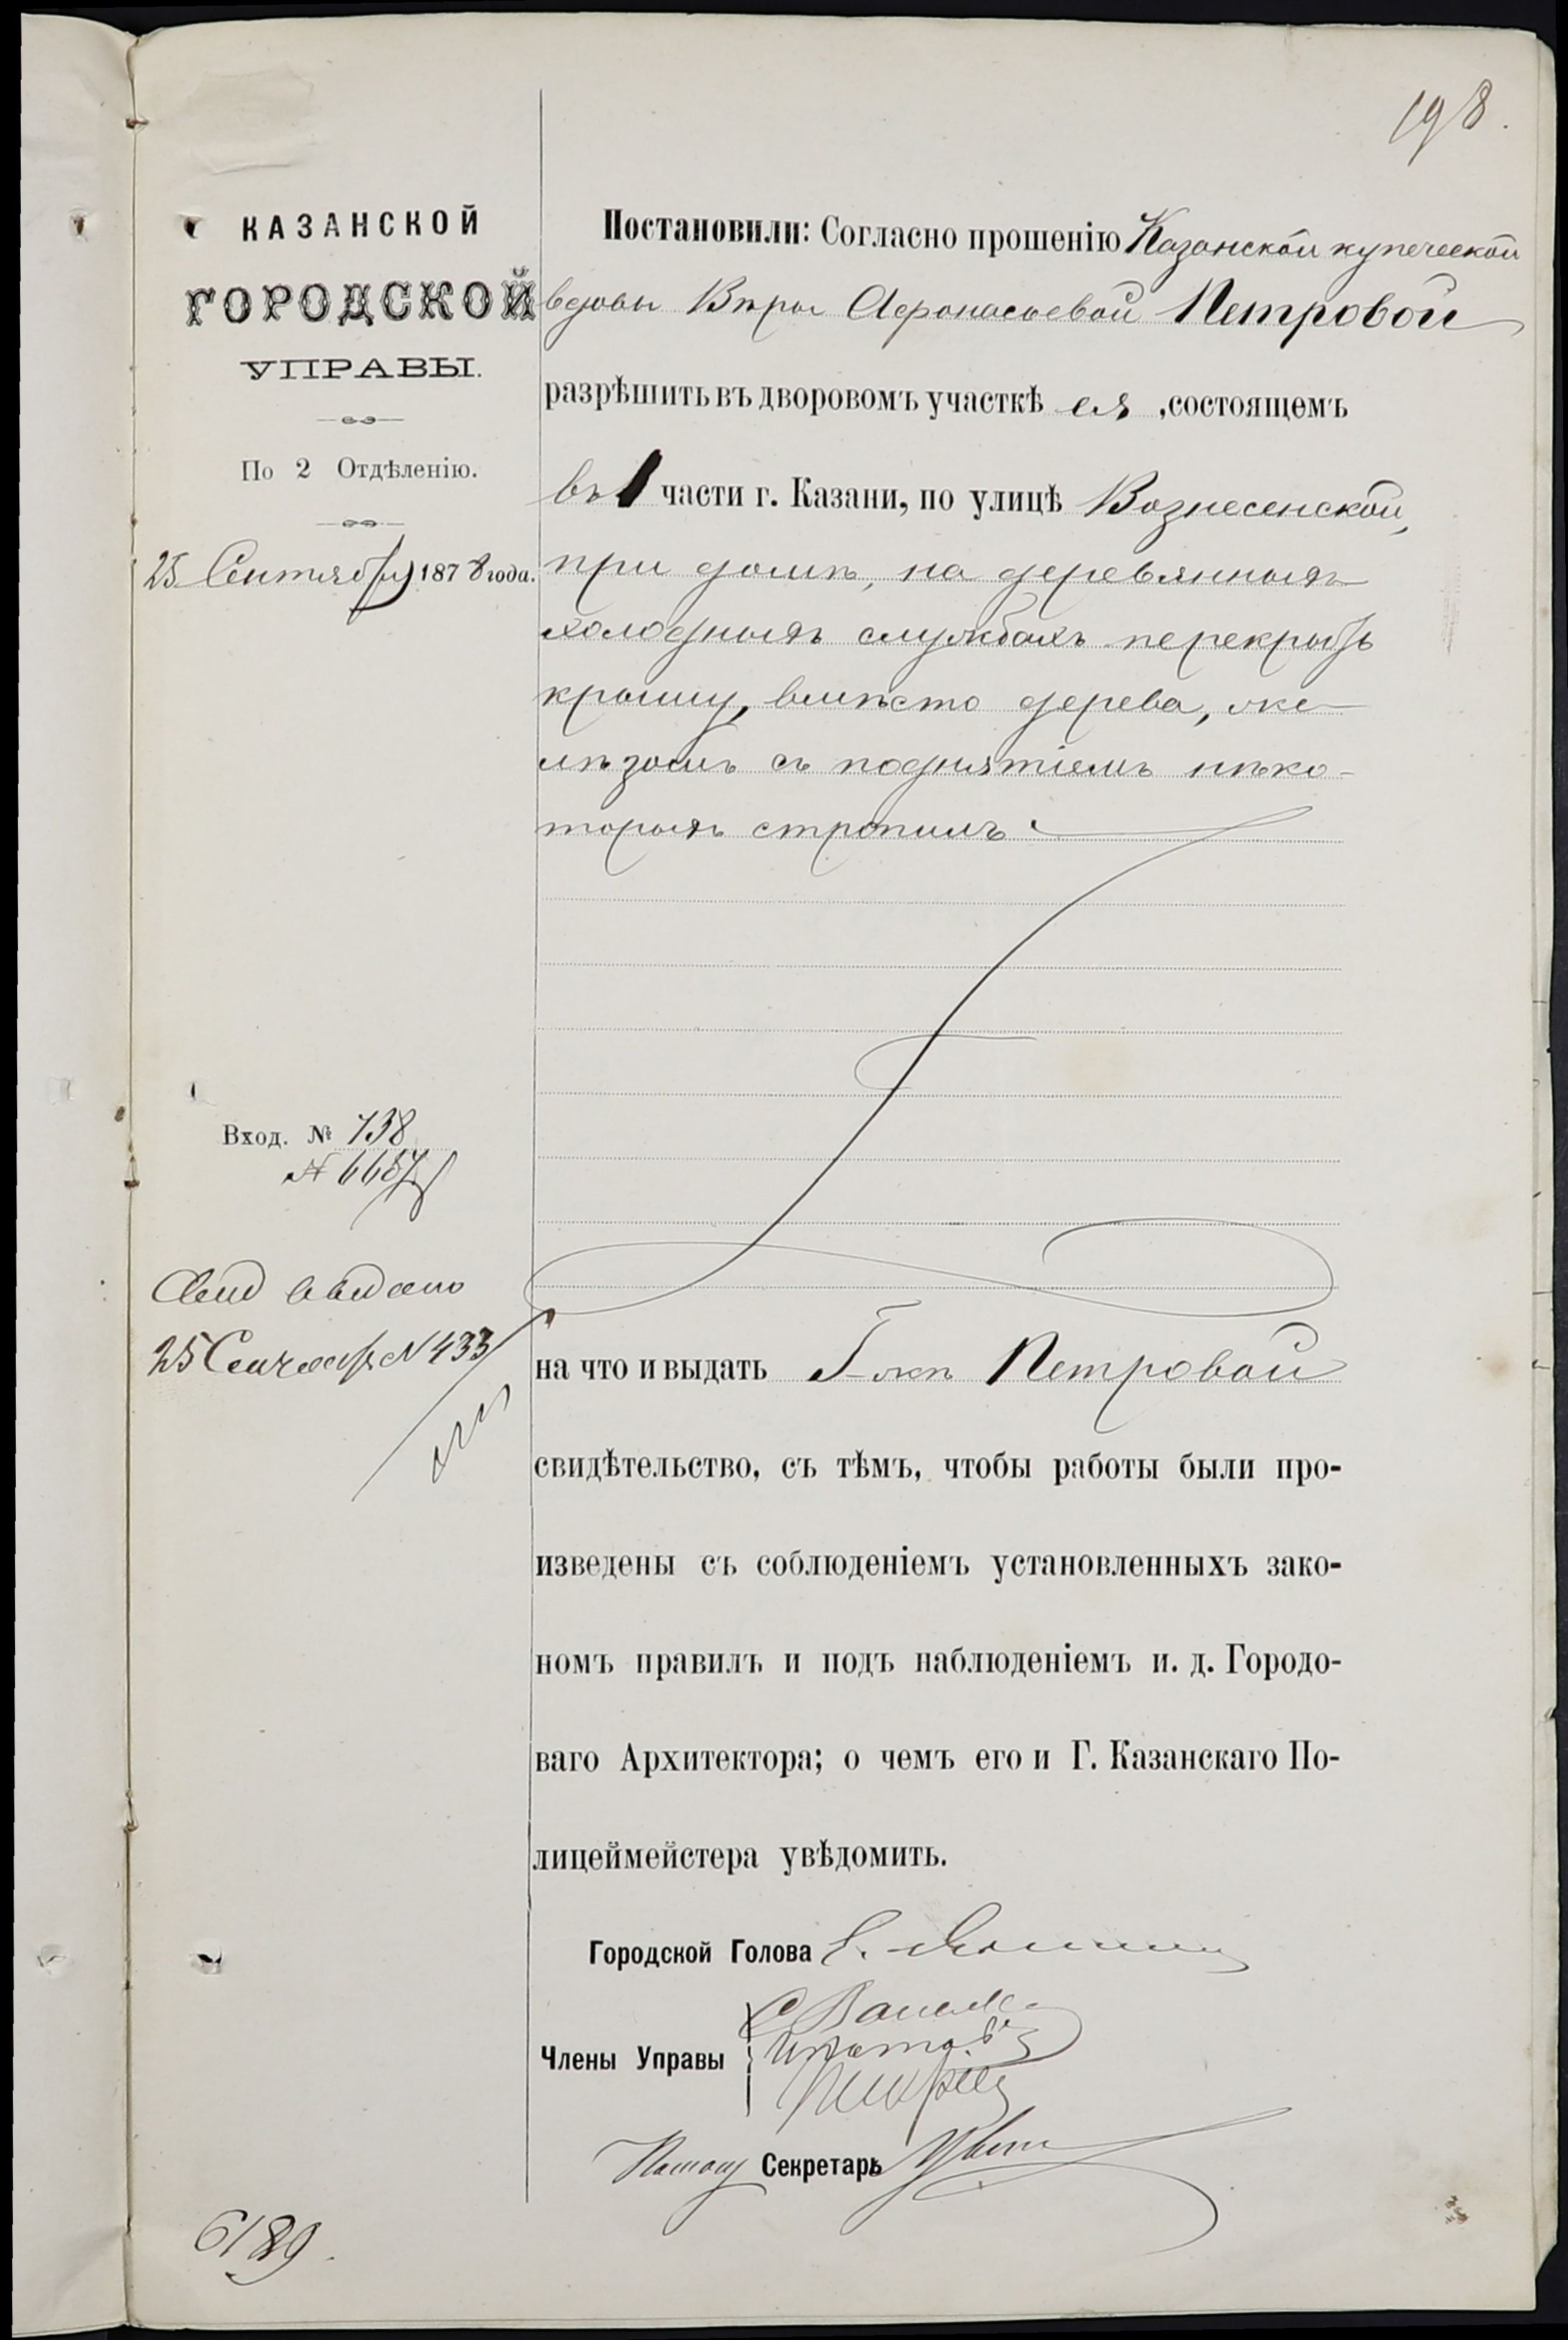 198.
КАЗАНСКОЙ
ГОРОДСКОЙ
УПРАВЫ.
По 2 Отдѣленію.
25 Сентября 1878 года.
Постановили: Согласно прошенію Казанской купеческой
вдовы Вѣры Афонасьевой Петровой
разрѣшить въ дворовомъ участкѣ ея, состоящемъ
въ 1 части г. Казани, по улицѣ Вознесенской,
при домѣ, на деревянныхъ
холодныхъ службахъ перекрыть
крышу, вмѣсто дерева, же-
лѣзомъ съ поднятіемъ нѣко-
торыхъ стропилъ.
Вход. № 738
№ 6687
Свид выдано
25 Сентябр № 433
на что и выдать Г-жѣ Петровой
свидѣтельство, съ тѣмъ, чтобы работы были про-
изведены съ соблюденіемъ установленныхъ зако-
номъ правилъ и подъ наблюденіемъ и. д. Городо-
ваго Архитектора; о чемъ его и Г. Казанскаго По-
лицеймейстера увѣдомить.
Городской Голова
Члены Управы
Секретарь
6189.